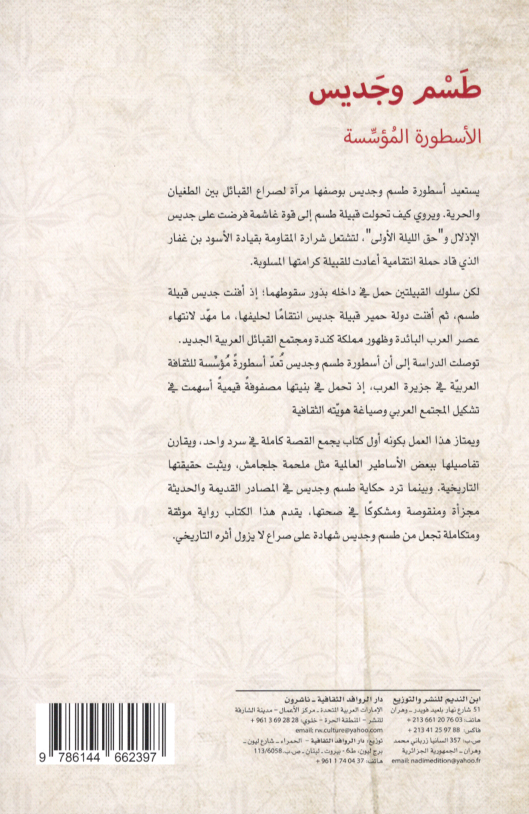 طَسْم وجَديس
الأسطورة المُؤسِّسة
يستعيد أسطورة طسم وجديس بوصفها مرآة لصراع القبائل بين الطغيان
والحرية. ويروي كيف تحولت قبيلة طسم إلى قوة غاشمة فرضت على جديس
الإذلال و"حق الليلة الأولى"، لتشتعل شرارة المقاومة بقيادة الأسود بن غفار
الذي قاد حملة انتقامية أعادت للقبيلة كرامتها المسلوبة.
لكن سلوك القبيلتين حمل في داخله بذور سقوطهما؛ إذ أفنت جديس قبيلة
طسم، ثم أفنت دولة حمير قبيلة جديس انتقامًا لحليفها، ما مهّد لانتهاء
عصر العرب البائدة وظهور مملكة كندة ومجتمع القبائل العربية الجديد.
توصلت الدراسة إلى أن أسطورة طسم وجديس تُعدّ أسطورةً مُؤسِّسة للثقافة
العربيّة في جزيرة العرب، إذ تحمل في بنيتها مصفوفةً قيميةً أسهمت في
تشكيل المجتمع العربي وصياغة هويّته الثقافية
ويمتاز هذا العمل بكونه أول كتاب يجمع القصة كاملة في سرد واحد، ويقارن
تفاصيلها ببعض الأساطير العالمية مثل ملحمة جلجامش، ويثبت حقيقتها
التاريخية. وبينما ترد حكاية طسم وجديس في المصادر القديمة والحديثة
مجزأة ومنقوصة ومشكوكًا في صحتها، يقدم هذا الكتاب رواية موثقة
ومتكاملة تجعل من طسم وجديس شهادة على صراع لا يزول أثره التاريخي.
ابن النديم للنشر والتوزيع
51 شارع نهار بلعيد فويدر ـ وهران
هاتف: 03 76 20 661 213 +
فاكس: 88 97 25 41 213 +
ص.ب: 357 السانيا زرباني محمد
وهران ـ الجمهورية الجزائرية
email: nadimedition@yahoo.fr
دار الروافد الثقافية ـ ناشرون
الإمارات العربية المتحدة ـ مركز الأعمال - مدينة الشارقة
للنشر - المنطقة الحرة - خلوي: 28 28 69 3 961 +
email: rw.culture@yahoo.com
توزيع: دار الروافد الثقافية - الحمراء ـ شارع ليون ـ
برج ليون، ط6 - بيروت ـ لبنان ـ ص.ب. 113/6058
هاتف: 37 04 74 1 961 +
9 786144 662397